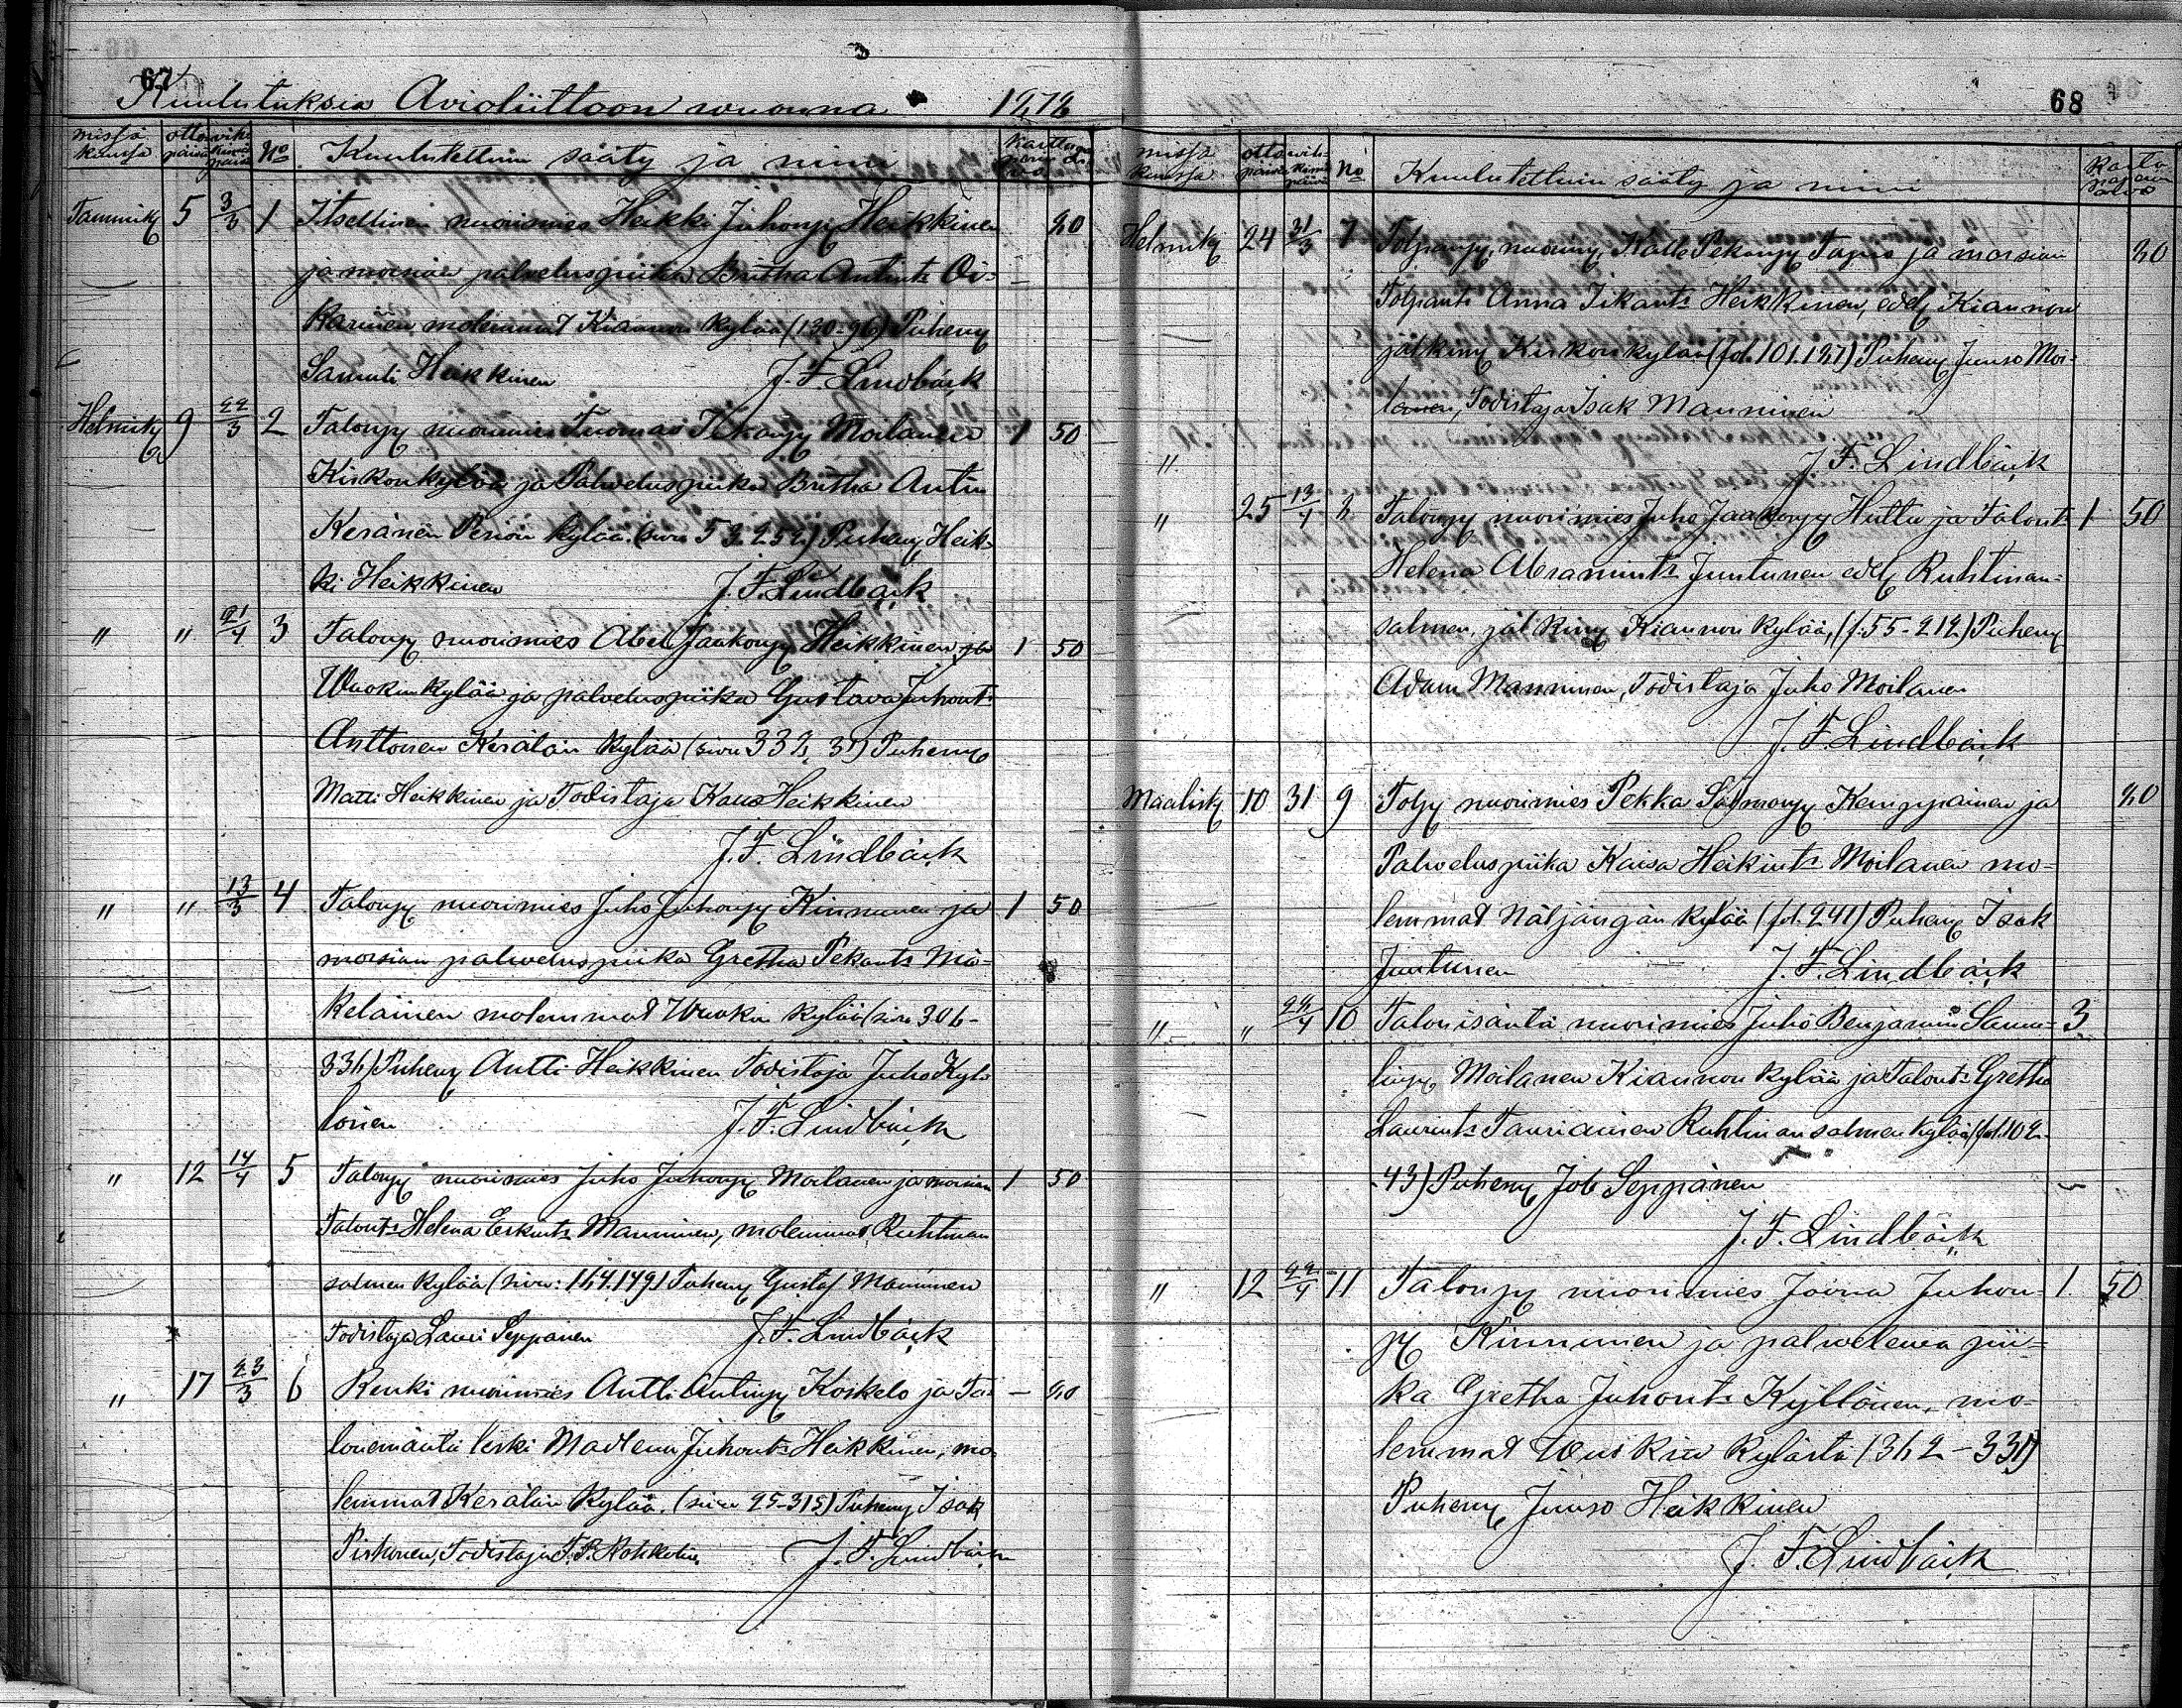 67
Kuulutuksia Avioliittoon vuonna 1878
missä kuussa otto päivä vihkimä päivä No Kuulutettuin sääty ja nimi
Tammik 5 3/3 1 Itsellinen nuorimies Heikki Juhonp Heikkinen 80
ja morsian palveluspiika Britha Antint Oi- —
karinen molemmat Kiannon kylää (130.96) Puhem
Samuli Heikkinen J. F. Lindbäck
Helmik 9 22/3 2 Talonp nuorimies Tuomas Moilanen 1 50
Kirkonkylää ja Palveluspiika Britha Antin
Keränen Perön kylää. (sivu 58.252) Puhem Heik-
ki Heikkinen J. F. Lindbäck
" " 21/4 3 Talonp nuorimies Abel Jaakonp Heikkinen 1 50
Wuokin kylää ja palveluspiika Gustava Juhont
Anttonen Kerälän kylää (sivu Puhem
Matti Heikkinen ja Todistaja Heikkinen
J. F. Lindbäck
" " 13/3 4 Talonp nuorimies Juho Juhonp Kinnunen ja 1 50
morsian palveluspiika Gretha Pekant Mä-
keläinen molemmat Wuokin kylää (sivu 306-
336) Puhem Antti Heikkinen Todistaja Juho Kyl-
lönen J. F. Lindbäck
" 12 14/4 5 Talonp nuorimies Juho Juhonp Moilanen ja morsian 1 50
Talont Helena Erkint Manninen, molemmat Ruhtinan
salmen kylää (sivu: 164.149) Puhem Gustaf Manninen
Todistaja Lauri Seppänen J. F. Lindbäck
" 17 23/3 6 Renki nuorimies Antti Antinp Koskelo ja Ta- — 80
lonemäntä leski Madlena Juhont Heikkinen, mo-
lemmat Kerälän kylää. (sivu 95-315) Puhem Isak
Pirhonen, Todistaja J. F. Lindbäck
68
missä kuussa otto päivä vihkimä päivä No Kuulutettuin sääty ja nimi
Helmik 24 31/3 7 Tolpanp. nuorimp. Kalle Pekanp Tapio ja morsian 80
Tolpant Anna Iikant Heikkinen, edell Kiannon
jälkim Kirkonkylää (fol. 101.137) Puhem Juuso Moi-
lanen, Todistaja Isak Manninen
" J. F. Lindbäck
" 25 13/4 8 Talonp nuorimies Juho Jaakonp Huttu ja Talont 1 50
Helena Abramint Juntunen edell Ruhtinan-
salmen, jälkim Kiannon kylää, (f. 55-212) Puhem
Adam Manninen, Todistaja Juho Moilanen
J. F. Lindbäck
Maalisk 10 31 9 Tolp nuorimies Pekka Salmonp Kemppainen ja 80
Palveluspiika Kaisa Heikint Moilanen mo-
lemmat Näljängän kylää (fol. 241) Puhem Isak
Juntunen J. F. Lindbäck
" " 22/4 10 Talonisäntä nuorimies Juho Benjamin Samu- 3
linp Moilanen Kiannon kylää ja Talont Gretha
Laurint Tauriainen Ruhtinansalmen kylää (fol. 102.
43) Puhem Job Seppänen
J. F. Lindbäck
" 12 22/4 11 Talonp nuorimies Joona Juhon- 1. 50
p Kinnunen ja palveleva pii-
ka Gretha Juhont Kyllönen, mo-
lemmat Wuokin kylästä (362-331)
Puhem Juuso Heikkinen
J. F. Lindbäck